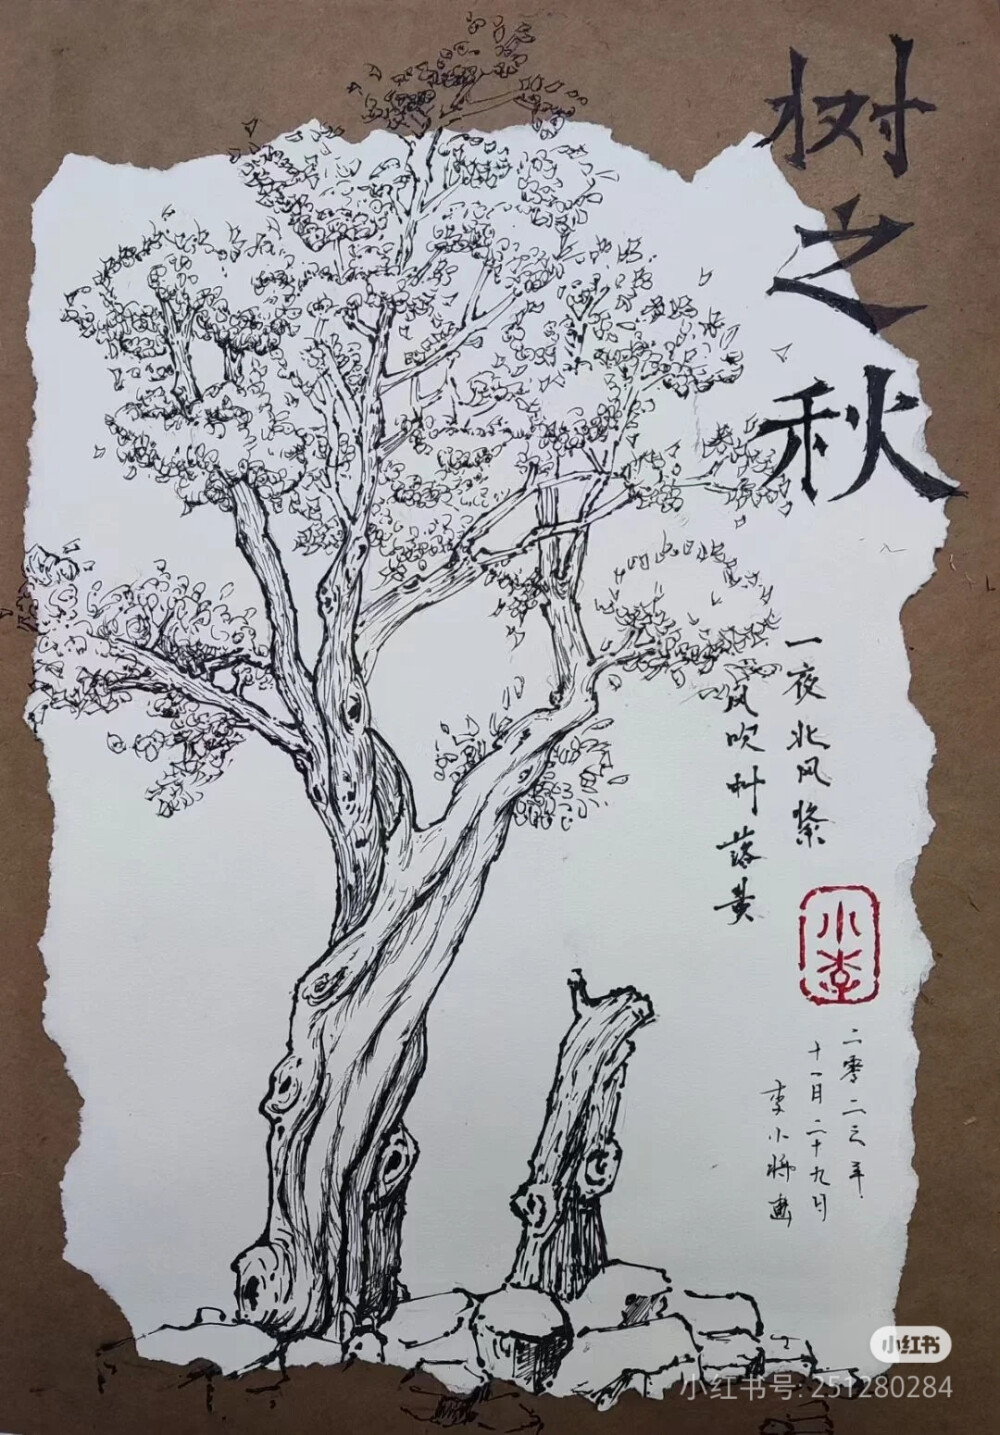 树之秋
一夜北风紧
风吹树落黄
小李
二零二三年
十一月二十九日
李小将画
小红书
小红书号: 251280284